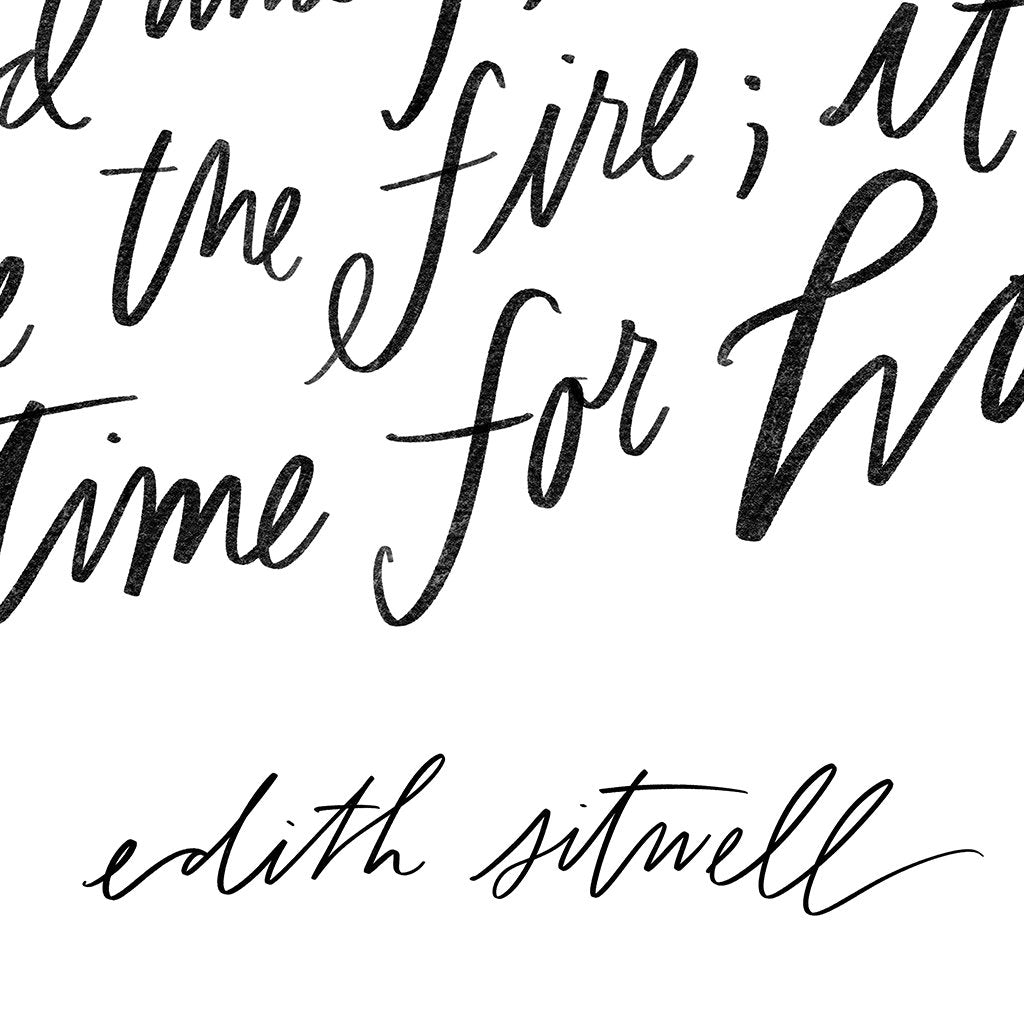 the fire; it
time for
edith sitwell